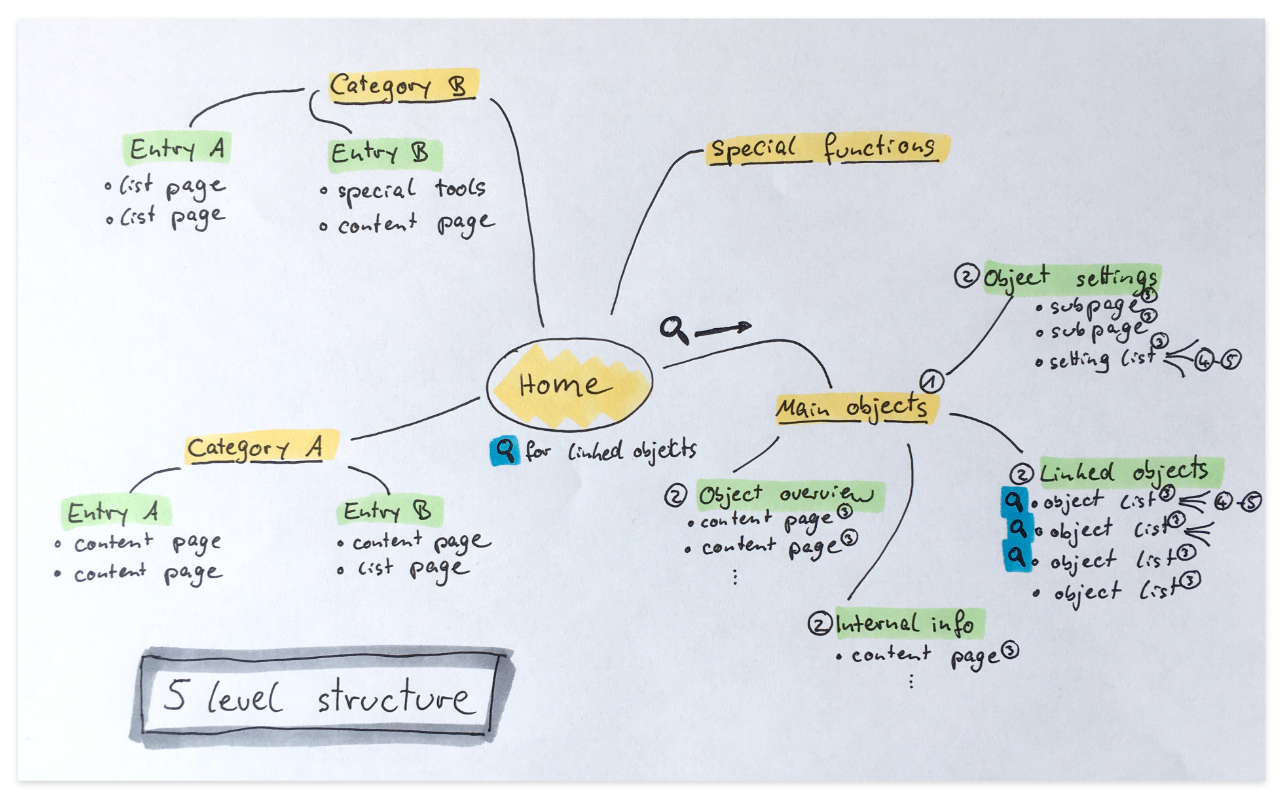 Category B
Entry A
• list page
• list page
Entry B
• special tools
• content page
Special functions
② Object settings
• subpage ③
• subpage ③
• setting list ③ ④-⑤
Home
🔍 for linked objekts
Main objects ①
Category A
Entry A
• content page
• content page
Entry B
• content page
• list page
② Object overview
• content page ③
• content page ③
⋮
② Linked objects
• object list ③ ④-⑤
• object list ③
• object list ③
• object list ③
② Internal info
• content page ③
⋮
5 level structure